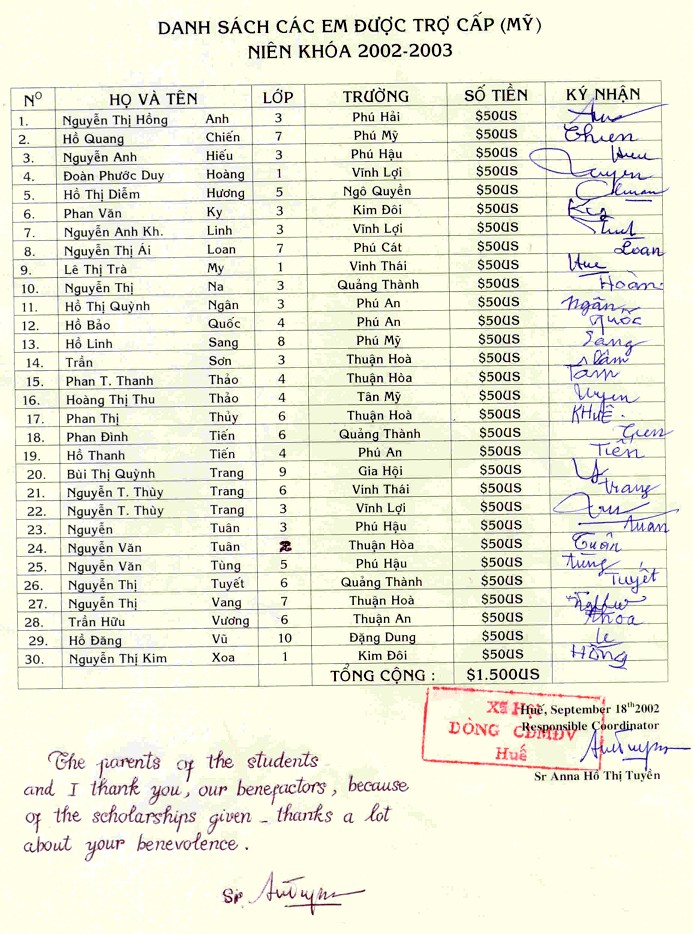 DANH SÁCH CÁC EM ĐƯỢC TRỢ CẤP (MỸ)
NIÊN KHÓA 2002-2003
NO HỌ VÀ TÊN LỚP TRƯỜNG SỐ TIỀN KÝ NHẬN
1. Nguyễn Thị Hồng Anh 3 Phú Hải $50US
2. Hồ Quang Chiến 7 Phú Mỹ $50US Chien
3. Nguyễn Anh Hiếu 3 Phú Hậu $50US Hieu
4. Đoàn Phước Duy Hoàng 1 Vĩnh Lợi $50US
5. Hồ Thị Diễm Hương 5 Ngô Quyền $50US
6. Phan Văn Ky 3 Kim Đôi $50US
7. Nguyễn Anh Kh. Linh 3 Vĩnh Lợi $50US
8. Nguyễn Thị Ái Loan 7 Phú Cát $50US Loan
9. Lê Thị Trà My 1 Vinh Thái $50US Hue
10. Nguyễn Thị Na 3 Quảng Thành $50US Hoàn
11. Hồ Thị Quỳnh Ngân 3 Phú An $50US Ngân
12. Hồ Bảo Quốc 4 Phú An $50US Quốc
13. Hồ Linh Sang 8 Phú Mỹ $50US Sang
14. Trần Sơn 3 Thuận Hoà $50US
15. Phan T. Thanh Thảo 4 Thuận Hòa $50US Tam
16. Hoàng Thị Thu Thảo 4 Tân Mỹ $50US Uyen
17. Phan Thị Thủy 6 Thuận Hoà $50US KHUÊ.
18. Phan Đình Tiến 6 Quảng Thành $50US
19. Hồ Thanh Tiến 4 Phú An $50US Tiến
20. Bùi Thị Quỳnh Trang 9 Gia Hội $50US
21. Nguyễn T. Thùy Trang 6 Vinh Thái $50US Trang
22. Nguyễn T. Thùy Trang 3 Vĩnh Lợi $50US
23. Nguyễn Tuân 3 Phú Hậu $50US Tuân
24. Nguyễn Văn Tuân 2 Thuận Hòa $50US Tuân
25. Nguyễn Văn Tùng 5 Phú Hậu $50US tùng
26. Nguyễn Thị Tuyết 6 Quảng Thành $50US Tuyết
27. Nguyễn Thị Vang 7 Thuận Hoà $50US
28. Trần Hữu Vương 6 Thuận An $50US Khoa
29. Hồ Đăng Vũ 10 Đặng Dung $50US Le
30. Nguyễn Thị Kim Xoa 1 Kim Đôi $50US Hồng
TỔNG CỘNG : $1.500US
Huế, September 18th2002
Responsible Coordinator
Sr Anna Hồ Thị Tuyên
Xã Hội
DÒNG CĐMĐV
Huế
The parents of the students
and I thank you, our benefactors, because
of the scholarships given - thanks a lot
about your benevolence.
Sr.